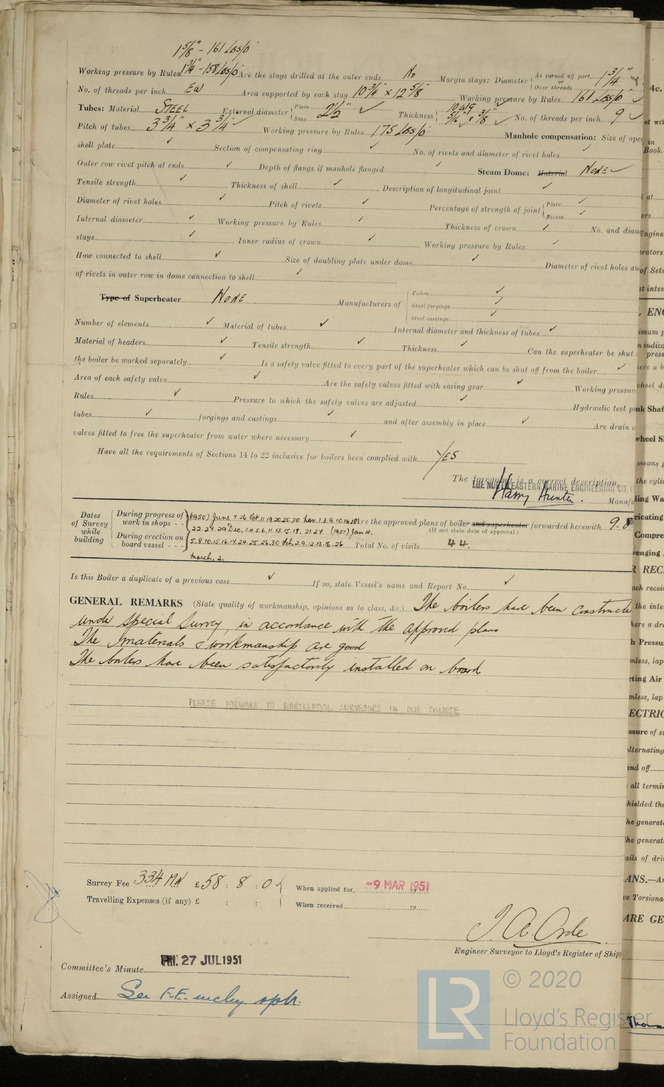 1 5/8" - 161 Lbs/□"
Working pressure by Rules 1 3/4" - 158 Lbs/□" Are the stays drilled at the outer ends No Margin stays: Diameter { At turned off part, or Over threads 1 3/4" ✓
No. of threads per inch EW Area supported by each stay 10 3/4" × 12 5/8" Working pressure by Rules 161 Lbs/□" ✓
Tubes: Material STEEL External diameter { Plain Stay 2 1/2" ✓ Thickness { 10 WG 5/16" & 3/8 ✓ No. of threads per inch 9 ✓
Pitch of tubes 3 3/4" × 3 3/4" ✓ Working pressure by Rules 175 Lbs/□" Manhole compensation: Size of open
shell plate ✓ Section of compensating ring ✓ No. of rivets and diameter of rivet holes ✓
Outer row rivet pitch at ends ✓ Depth of flange if manhole flanged ✓ Steam Dome: Material NONE ✓
Tensile strength ✓ Thickness of shell ✓ Description of longitudinal joint ✓
Diameter of rivet holes ✓ Pitch of rivets ✓ Percentage of strength of joint { Plate ✓ Rivets ✓
Internal diameter ✓ Working pressure by Rules ✓ Thickness of crown ✓ No. and diam
stays ✓ Inner radius of crown ✓ Working pressure by Rules ✓
How connected to shell ✓ Size of doubling plate under dome ✓ Diameter of rivet holes an
of rivets in outer row in dome connection to shell ✓
Type of Superheater NONE Manufacturers of { Tubes ✓ Steel forgings ✓ Steel castings ✓
Number of elements ✓ Material of tubes ✓ Internal diameter and thickness of tubes ✓
Material of headers ✓ Tensile strength ✓ Thickness ✓ Can the superheater be shut
the boiler be worked separately ✓ Is a safety valve fitted to every part of the superheater which can be shut off from the boiler ✓
Area of each safety valve ✓ Are the safety valves fitted with easing gear ✓ Working pressure
Rules ✓ Pressure to which the safety valves are adjusted ✓ Hydraulic test p
tubes ✓ forgings and castings ✓ and after assembly in place ✓ Are drain
valves fitted to free the superheater from water where necessary ✓
Have all the requirements of Sections 14 to 22 inclusive for boilers been complied with YES
The foregoing is a correct description,
THE NORTH EASTERN MARINE ENGINEERING CO
Harry Hunter. Manuf
Dates of Survey while building { During progress of work in shops - - (1950) June
During erection on board vessel - - -
March. 2.
Are the approved plans of boiler and superheater forwarded herewith 9.8
(If not state date of approval.)
Total No. of visits 44.
Is this Boiler a duplicate of a previous case ✓ If so, state Vessel's name and Report No. ✓
GENERAL REMARKS (State quality of workmanship, opinions as to class, &c.) The boilers have been constructe
under Special Survey, in accordance with the approved plans
The materials & workmanship are good
The boilers have been satisfactorily installed on board
PLEASE FORWARD TO HARTLEPOOL SURVEYORS IN DUE COURSE
Survey Fee £58 : 8 : 0 When applied for, -9 MAR 1951
Travelling Expenses (if any) £ : : When received, 19
Engineer Surveyor to Lloyd's Register of Ship
Committee's Minute FRI. 27 JUL 1951
Assigned See F.E. mchy. rpt.
LR
© 2020
Lloyd's Register
Foundation